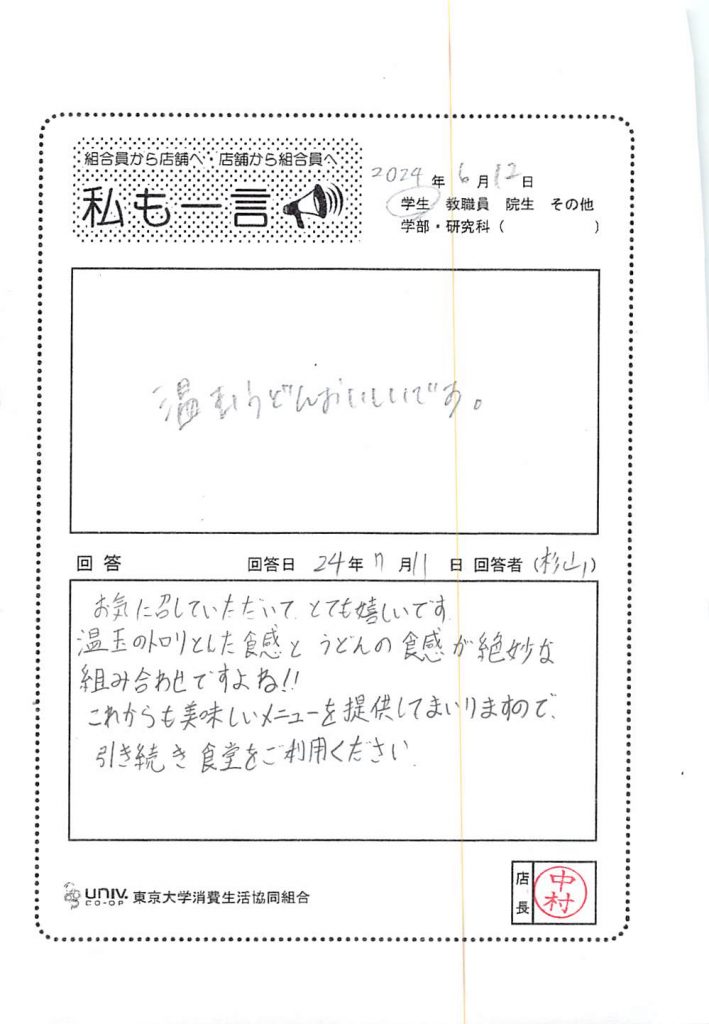 組合員から店舗へ・店舗から組合員へ
私も一言
2024年6月12日
学生 教職員 院生 その他
学部・研究科( )
温玉うどんおいしいです。
回答 回答日 24年7月11日 回答者(杉山)
お気に召していただいて、とても嬉しいです
温玉のトロリとした食感と うどんの食感が絶妙な
組み合わせですよね!!
これからも美味しいメニューを提供してまいりますので、
引き続き食堂をご利用ください
UNIV. CO-OP 東京大学消費生活協同組合
店長 中村